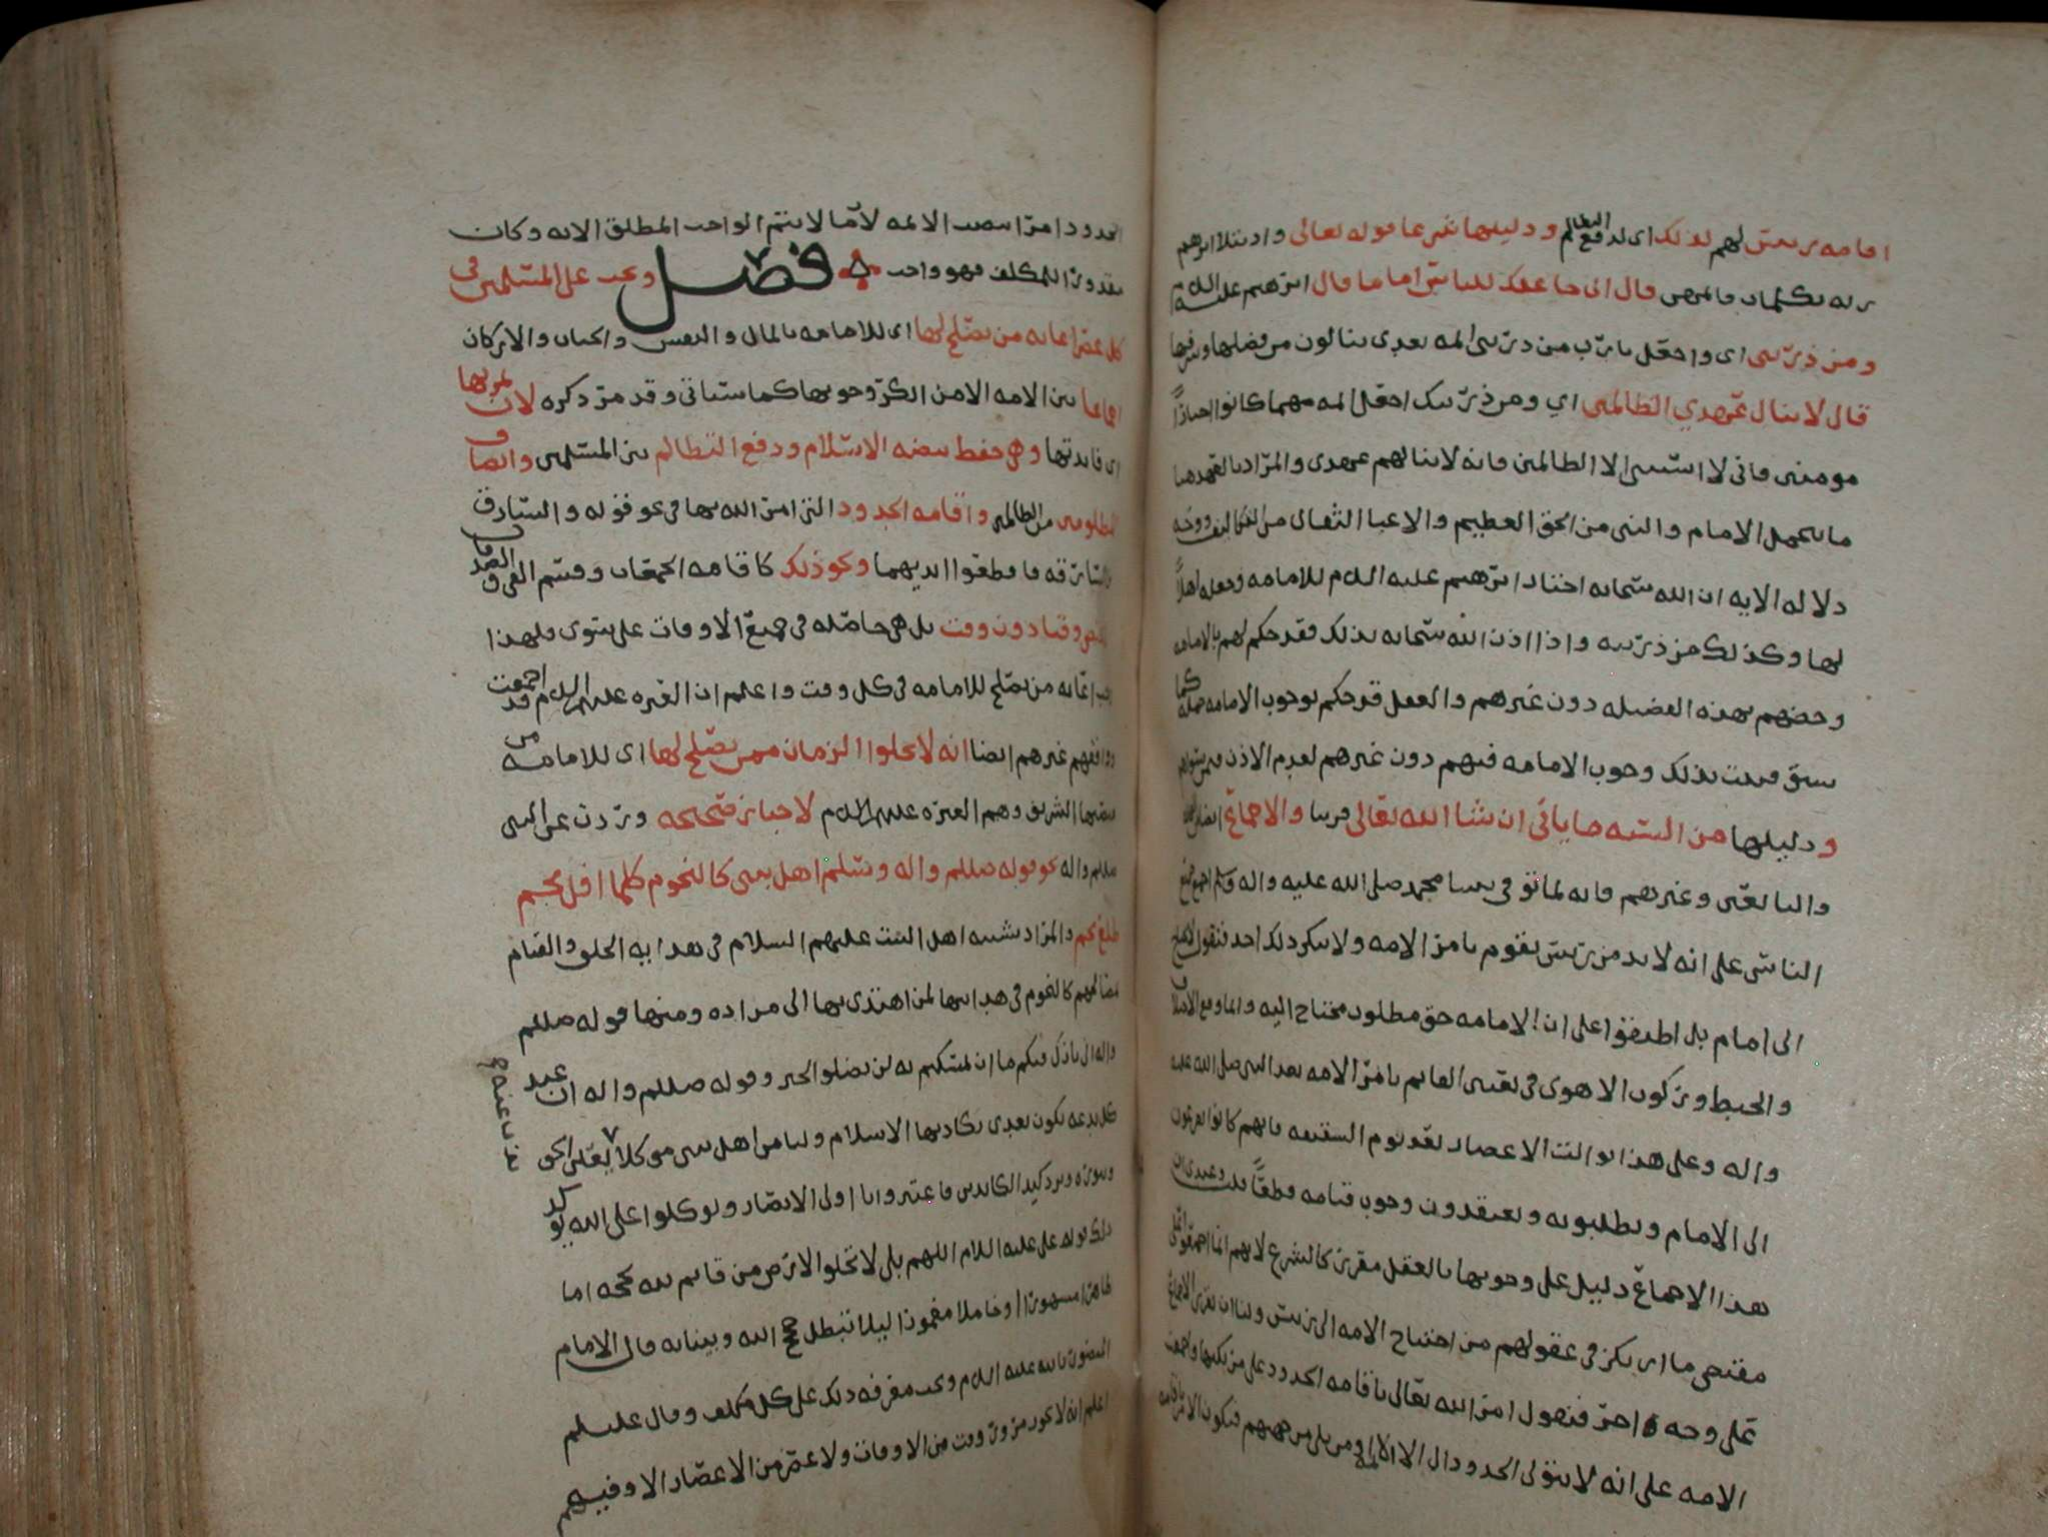 اقامه رئيس لهم لذلك اى لدفع التظالم ودليلها شرعا قوله تعالى واذ ابتلا ابرهيم
ربه بكلمات فاتمهن قال انى جاعلك للناس اماما قال ابرهيم عليه السلام
ومن ذريتى اى واجعل يا رب من ذريتى ائمه بعدى ينالون من فضلها وشرفها
قال لا ينال عهدي الظالمين اي ومن ذريتك اجعل ائمه مهما كانوا اخيارًا
مومنين فانى لا استثنى الا الظالمين فانه لا ينالهم عهدى والمراد بالعهد هنا
ما يتحمل الامام والنبى من الحق العظيم والاعبا الثقال من التكاليف ووجه
دلاله الايه ان الله سبحانه اختار ابرهيم عليه السلام للامامه وجعله اهلاً
لها وكذلك من ذريته واذا اذن الله سبحانه بذلك فقد حكم لهم بالامامه
وخصهم بهذه الفضيله دون غيرهم والعقل قد حكم بوجوب الامامه جمله كما
سبق فثبت بذلك وجوب الامامه فيهم دون غيرهم لعدم الاذن فيمن سواهم
ودليلها من السنه ما ياتي ان شا الله تعالى قريبا والاجماع ايضا من
والتابعين وغيرهم فانه لما توفى نبينا محمد صلى الله عليه واله وسلم اجمع جميع
الناس على انه لا بد من رئيس يقوم بامر الامه ولا ينكر ذلك احد فتقول لا نحتاج
الى امام بل اطبقوا على ان الامامه حق مطلوب محتاج اليه وانما وقع الاختلاف
والخبط وركوب الاهوى فى تعيين القايم بامر الامه بعد النبى صلى الله عليه
واله وعلى هذا توالت الاعصار بعد يوم السقيفه فانهم كانوا يفزعون
الى الامام ويطلبونه ويعتقدون وجوب قيامه قطعًا قلت وعندى ان
هذا الاجماع دليل على وجوبها بالعقل مقررين كالشرع لانهم انما اجمعوا على
مقتضى ما اركز فى عقولهم من احتياج الامه الى رئيس ولنا ان نقرر الاجماع
على وجه اخر فنقول امر الله تعالى باقامه الحدود على مرتكبها واجمعت
الامه على انه لا يتولى الحدود الا الائمه ومن يلى من جهتهم فيكون الامر باقامه
الحدود امرا بنصب الائمه لانما لا يتم الواجب المطلق الا به وكان
مقدورا للمكلف فهو واجب فصل ويجب على المسلمين فى
كل عصر اعانه من يصلح لها اى للامامه بالمال والنفس والجنان والاركان
اجماعا بين الامه الا من انكر وجوبها كما سياتي وقد مر ذكره لان ثمرتها
اى فايدتها وهى حفظ بيضه الاسلام ودفع التظالم بين المسلمين وانصاف
المظلومين من الظالمين واقامه الحدود التى امر الله بها فى نحو قوله والسارق
والسارقه فاقطعوا ايديهما ونحو ذلك كاقامه الجمعات وقسم الفى والصدقات
وقتا دون وقت بل هى حاصله فى جميع الاوقات على سوى فلهذا
يجب اعانه من يصلح للامامه فى كل وقت واعلم ان العتره عليهم السلام قد اجمعت
ووافقهم غيرهم ايضا انه لا يخلوا الزمان ممن يصلح لها اى للامامه من
منصبها الشريف وهم العتره عليهم السلام لاخبار صحيحه وردت عن النبى
صللم واله نحو قوله صللم واله وسلم اهل بيتى كالنجوم كلما افل نجم
طلع نجم والمراد تشبيه اهل البيت عليهم السلام فى هدايه الخلق والقيام
بمصالحهم كالنجوم فى هدايتها لمن اهتدى بها الى مراده ومنها قوله صللم
واله انى تارك فيكم ما ان تمسكتم به لن تضلوا الخبر وقوله صللم واله ان عند
كل بدعه تكون بعدى يكاد بها الاسلام وليا من اهل بيتى موكلا يعلن الحق
وينوره ويرد كيد الكايدين فاعتبروا يا اولى الابصار وتوكلوا على الله يؤيد
ذلك قول على عليه السلام اللهم بلى لا تخلوا الارض من قايم لله بحجه اما
ظاهرا مشهورا او خاملا مغمورا ليلا تبطل حجج الله وبيناته قال الامام
المنصور بالله عليه السلام ويجب معرفه ذلك على كل مكلف وقال عليسلم
اعلم انه لا يجوز مرور وقت من الاوقات ولا عصر من الاعصار الا وفيهم